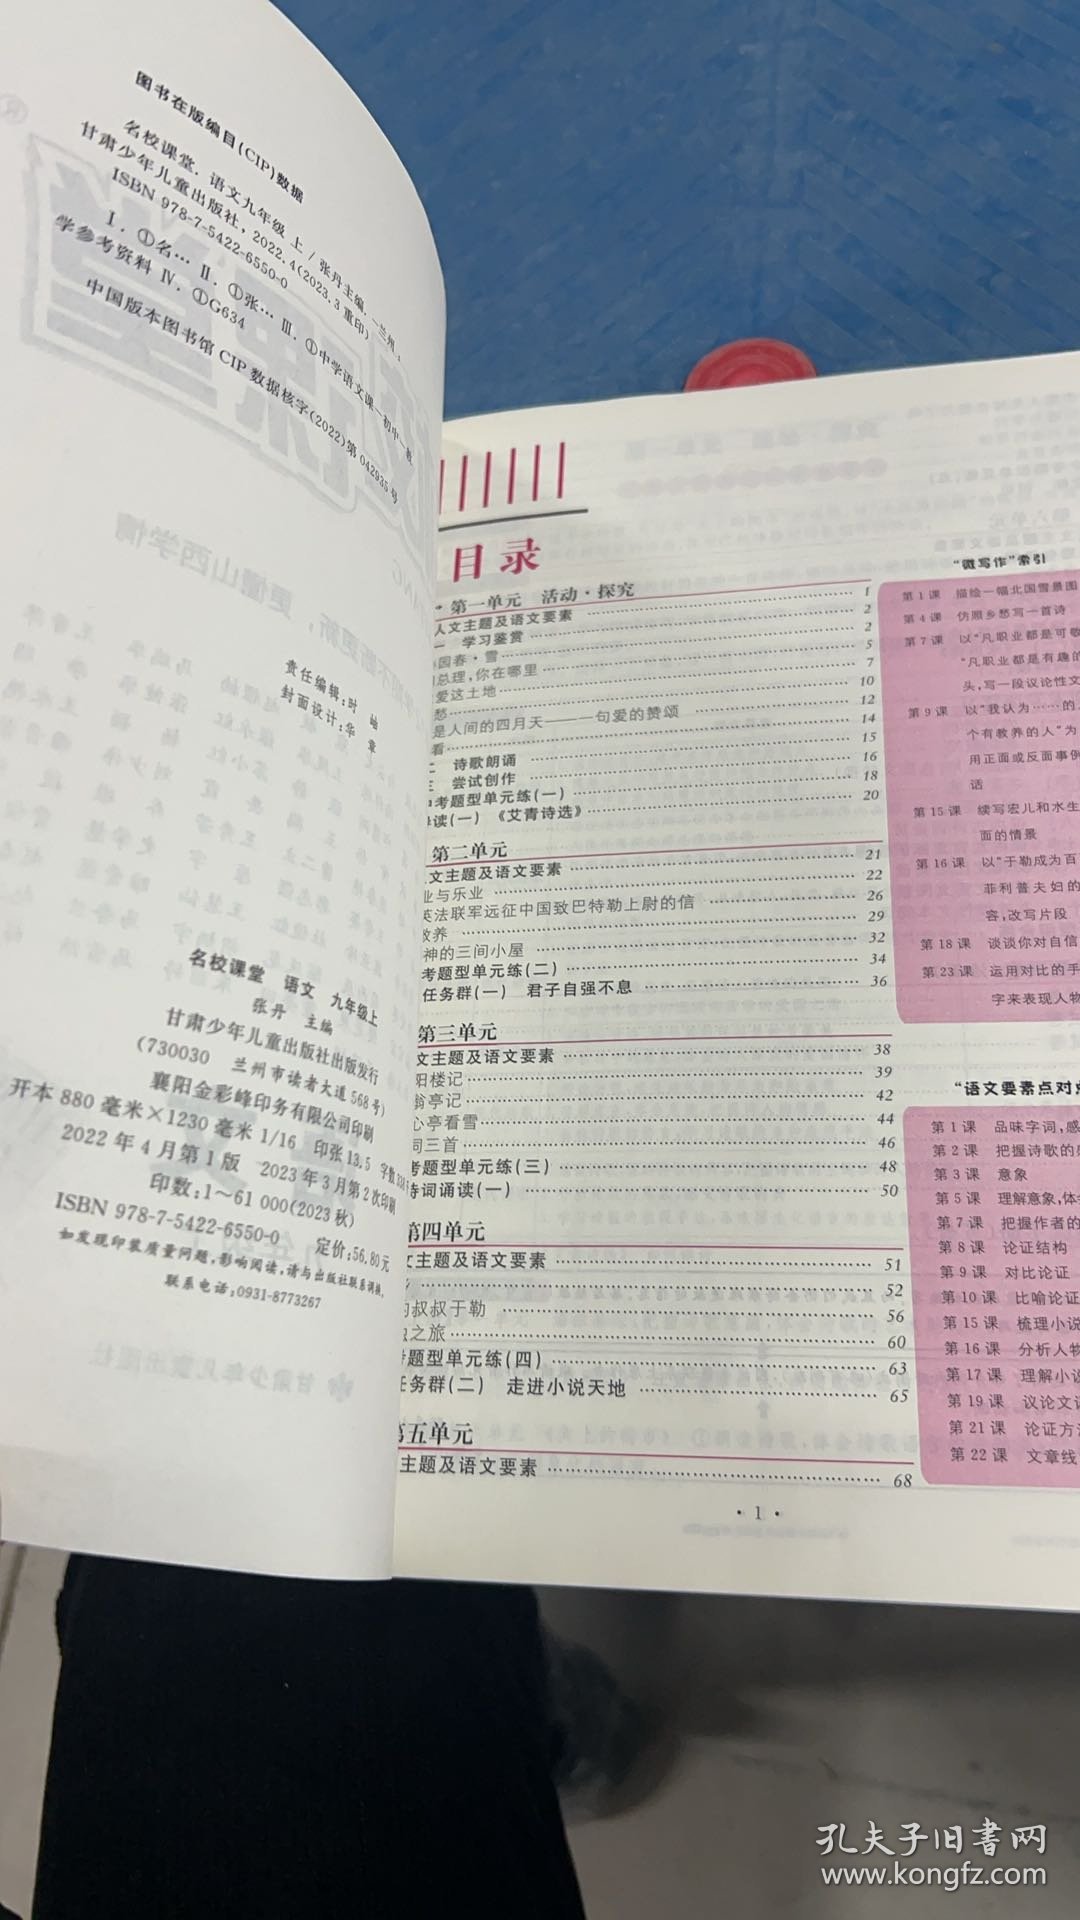 图书在版编目(CIP)数据
名校课堂. 语文九年级 上 / 张丹主编. —兰州：
甘肃少年儿童出版社，2022.4(2023.3重印)
ISBN 978-7-5422-6550-0
Ⅰ. ①名… Ⅱ. ①张… Ⅲ. ①中学语文课—初中—教
学参考资料 Ⅳ. ①G634
中国版本图书馆 CIP 数据核字(2022)第 042935 号
责任编辑:时 岫
封面设计:华 章
名校课堂 语文 九年级上
张丹 主编
甘肃少年儿童出版社出版发行
(730030 兰州市读者大道568号)
襄阳金彩峰印务有限公司印刷
开本 880 毫米×1230 毫米 1/16 印张13.5 字数
2022年4月第1版 2023年3月第2次印刷
印数:1～61 000(2023秋)
ISBN 978-7-5422-6550-0 定价:56.80元
如发现印装质量问题,影响阅读,请与出版社联系调换.
联系电话:0931-8773267
目录
第一单元 活动·探究
人文主题及语文要素 1
一 学习鉴赏 2
园春·雪 2
总理,你在哪里 5
爱这土地 7
愁 10
是人间的四月天——一句爱的赞颂 12
看 14
诗歌朗诵 15
尝试创作 16
考题型单元练(一) 18
读(一) 《艾青诗选》 20
第二单元
文主题及语文要素 21
业与乐业 22
英法联军远征中国致巴特勒上尉的信 26
教养 29
神的三间小屋 32
考题型单元练(二) 34
任务群(一) 君子自强不息 36
第三单元
文主题及语文要素 38
阳楼记 39
翁亭记 42
心亭看雪 44
词三首 46
考题型单元练(三) 48
诗词诵读(一) 50
第四单元
文主题及语文要素 51
52
的叔叔于勒 56
之旅 60
题型单元练(四) 63
任务群(二) 走进小说天地 65
第五单元
主题及语文要素 68
· 1 ·
“微写作”索引
第1课 描绘一幅北国雪景图
第4课 仿照乡愁写一首诗
第7课 以“凡职业都是可敬
“凡职业都是有趣的
头,写一段议论性文
第9课 以“我认为……的
个有教养的人”为
用正面或反面事例
话
第15课 续写宏儿和水生
面的情景
第16课 以“于勒成为百
菲利普夫妇的
容,改写片段
第18课 谈谈你对自信
第23课 运用对比的手
字来表现人物
“语文要素点对点
第1课 品味字词,感
第2课 把握诗歌的
第3课 意象
第5课 理解意象,体
第7课 把握作者的
第8课 论证结构
第9课 对比论证
第10课 比喻论证
第15课 梳理小说
第16课 分析人物
第17课 理解小说
第19课 议论文
第21课 论证方法
第22课 文章线
孔夫子旧书网
www.kongfz.com